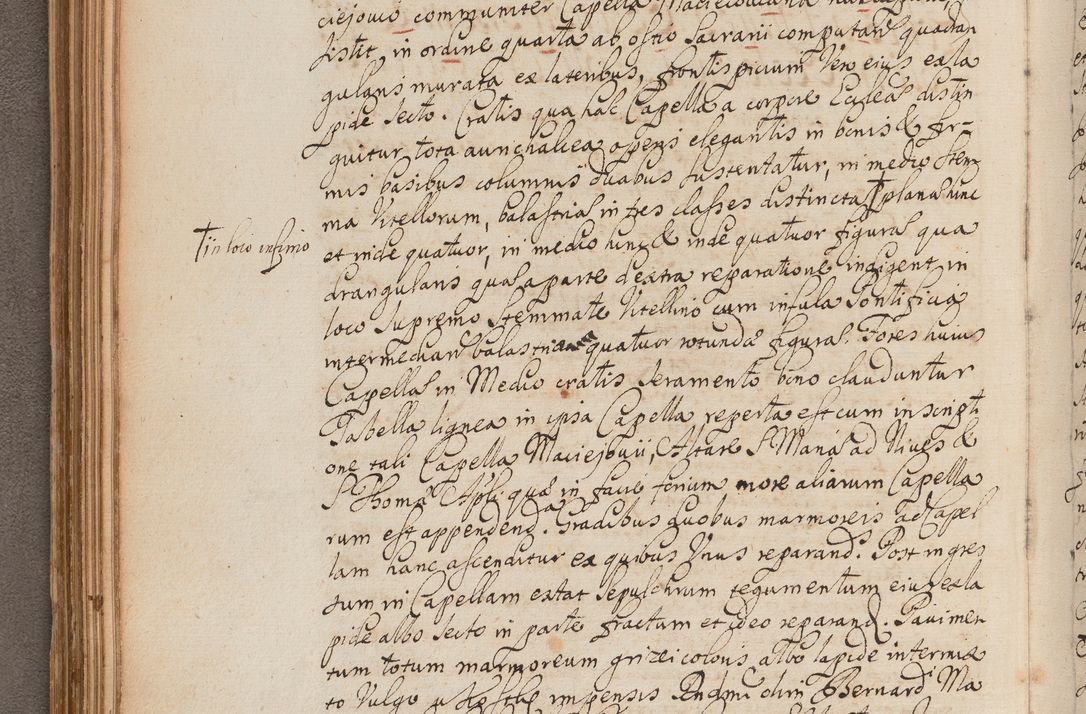 ciejovio communiter Capella Macieioviana
sistit, in ordine quarta ab ostio Sacrarii computan̄ quadran
gularis murata ex lateribus, frontispicium Vero eius ex la
pide secto. Cratis qua hæc Capella a corpore Ecclæ distin
guitur tota aurichalcea operis elegantis in binis & fir-
mis basibus columnis duabus sustentatur, in medio stem
ma Vitellorum, balastria in tres classes distincta † plana hinc
et inde quatuor, in medio hinc & inde quatuor figuræ qua
† in loco infimo
drangularis quæ a parte dextra reparatione indigent in
loco supremo stemmate Vitellino cum infula Pontificia
intermedian̄ balastria quatuor rotundæ figuræ. Fores huius
Capellæ in Medio cratis seramento bino clauduntur
Tabella lignea in ipsa Capella reperta est cum inscripti
one tali Capella Maciejovii, Altare S Mariæ ad Nives &
S Thomæ Apli quæ in facie forium more aliarum Capella
rum est appendend. Gradibus duobus marmoreis ad Capel
lam hanc ascenditur ex quibus Unus reparand. Post ingres
sum in Capellam extat Sepulchrum tegumentum eius ex la
pide albo secto in parte fractum et ideo reparand. Pavimen
tum totum marmoreum grizei coloris albo lapide intermix
to Vulgo impensis Rndmi olim Bernardi Ma